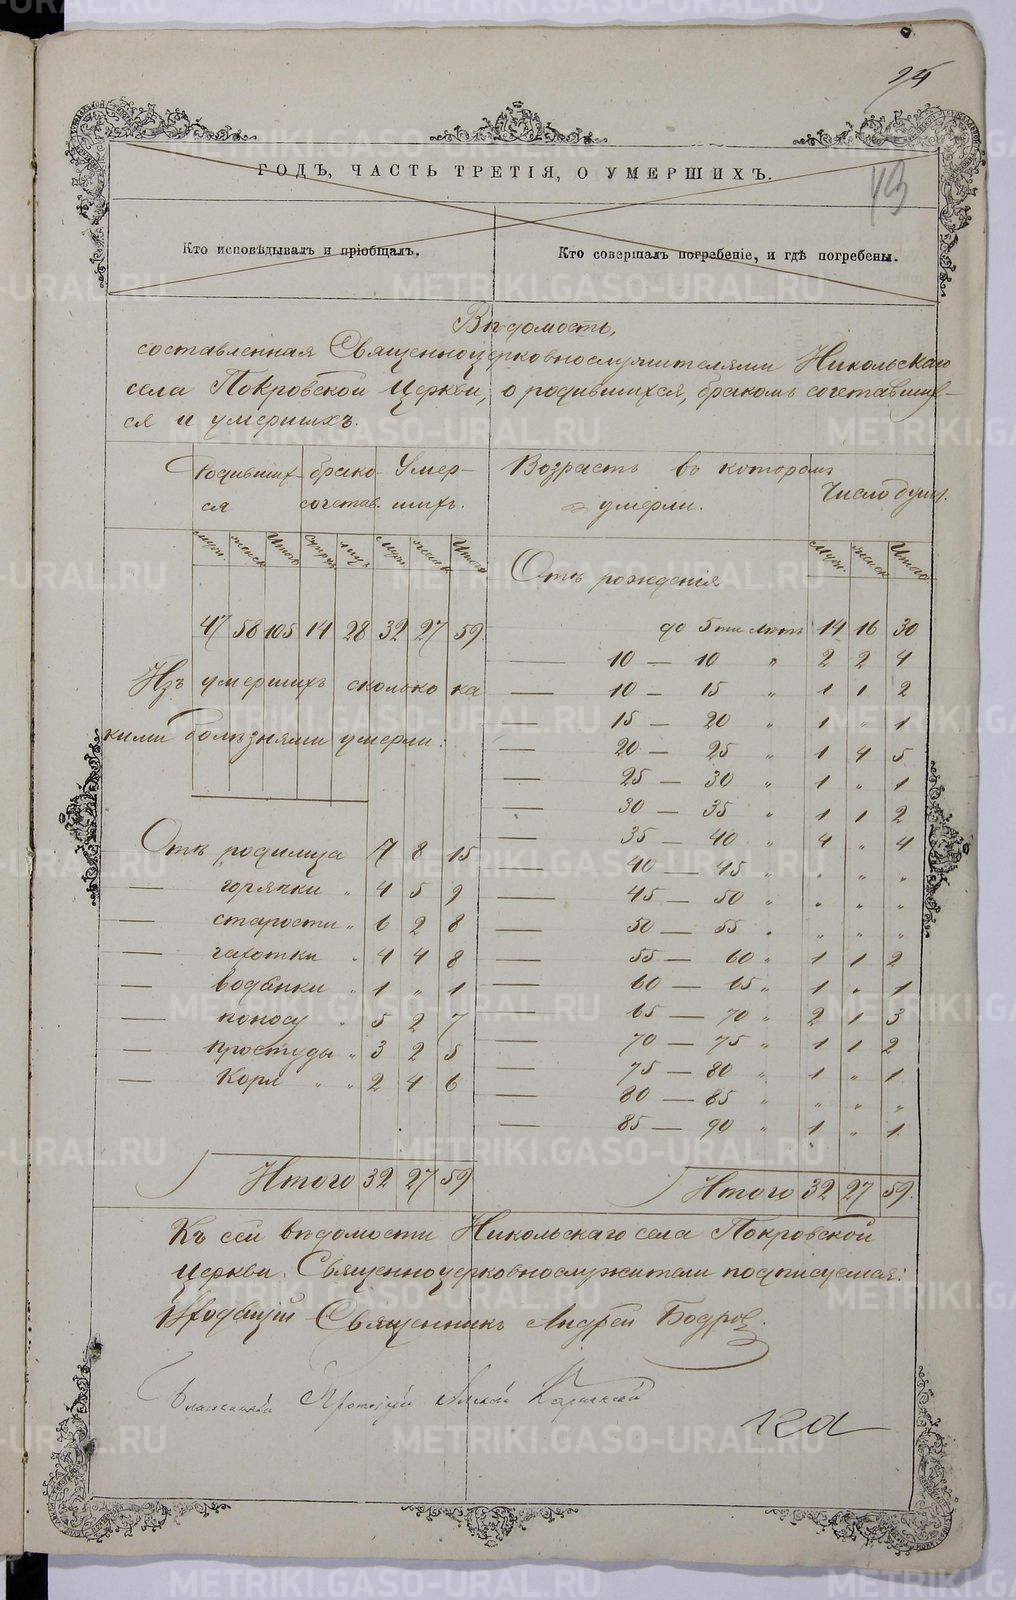 24
ГОДЪ, ЧАСТЬ ТРЕТІЯ, О УМЕРШИХЪ.
43
Кто исповѣдывалъ и пріобщалъ.
Кто совершалъ погребеніе, и гдѣ погребены.
Вѣдомость,
составленная Священноцерковнослужителями Никольскаго
села Покровской Церкви, о родившихся, бракомъ сочетавших-
ся и умершихъ.
Родивших- брако- Умер-
ся сочетав. шихъ.
муж. женск. Итого супруж. лицъ муж. женск. Итого
47 58 105 14 28 32 27 59
Изъ умершихъ сколько ка
кими болѣзнями умерли:
Отъ родимца 7 8 15
— горячки " 4 5 9
— старости " 6 2 8
— чахотки " 4 4 8
— водянки " 1 " 1
— поносу " 5 2 7
— простуды " 3 2 5
— Коря " " 2 4 6
Итого 32 27 59
Возрастъ въ которомъ
умерли.
Число душъ.
муж. женск. Итого
Отъ рожденія
до 5ти лѣтъ 14 16 30
— 10 — 10 " 2 2 4
— 10 — 15 " 1 1 2
— 15 — 20 " 1 " 1
— 20 — 25 " 1 4 5
— 25 — 30 " 1 " 1
— 30 — 35 " 1 1 2
— 35 — 40 " 4 " 4
— 40 — 45 " " " "
— 45 — 50 " " " "
— 50 — 55 " " " "
— 55 — 60 " 1 1 2
— 60 — 65 " 1 " 1
— 65 — 70 " 2 1 3
— 70 — 75 " 1 1 2
— 75 — 80 " 1 " 1
— 80 — 85 " " " "
— 85 — 90 " 1 " 1
Итого 32 27 59.
Къ сей вѣдомости Никольскаго села Покровской
Церкви Священноцерковнослужители подписуемся:
Священникъ Андрей Бодровъ.
Протоіерей
METRIKI.GASO-URAL.RU